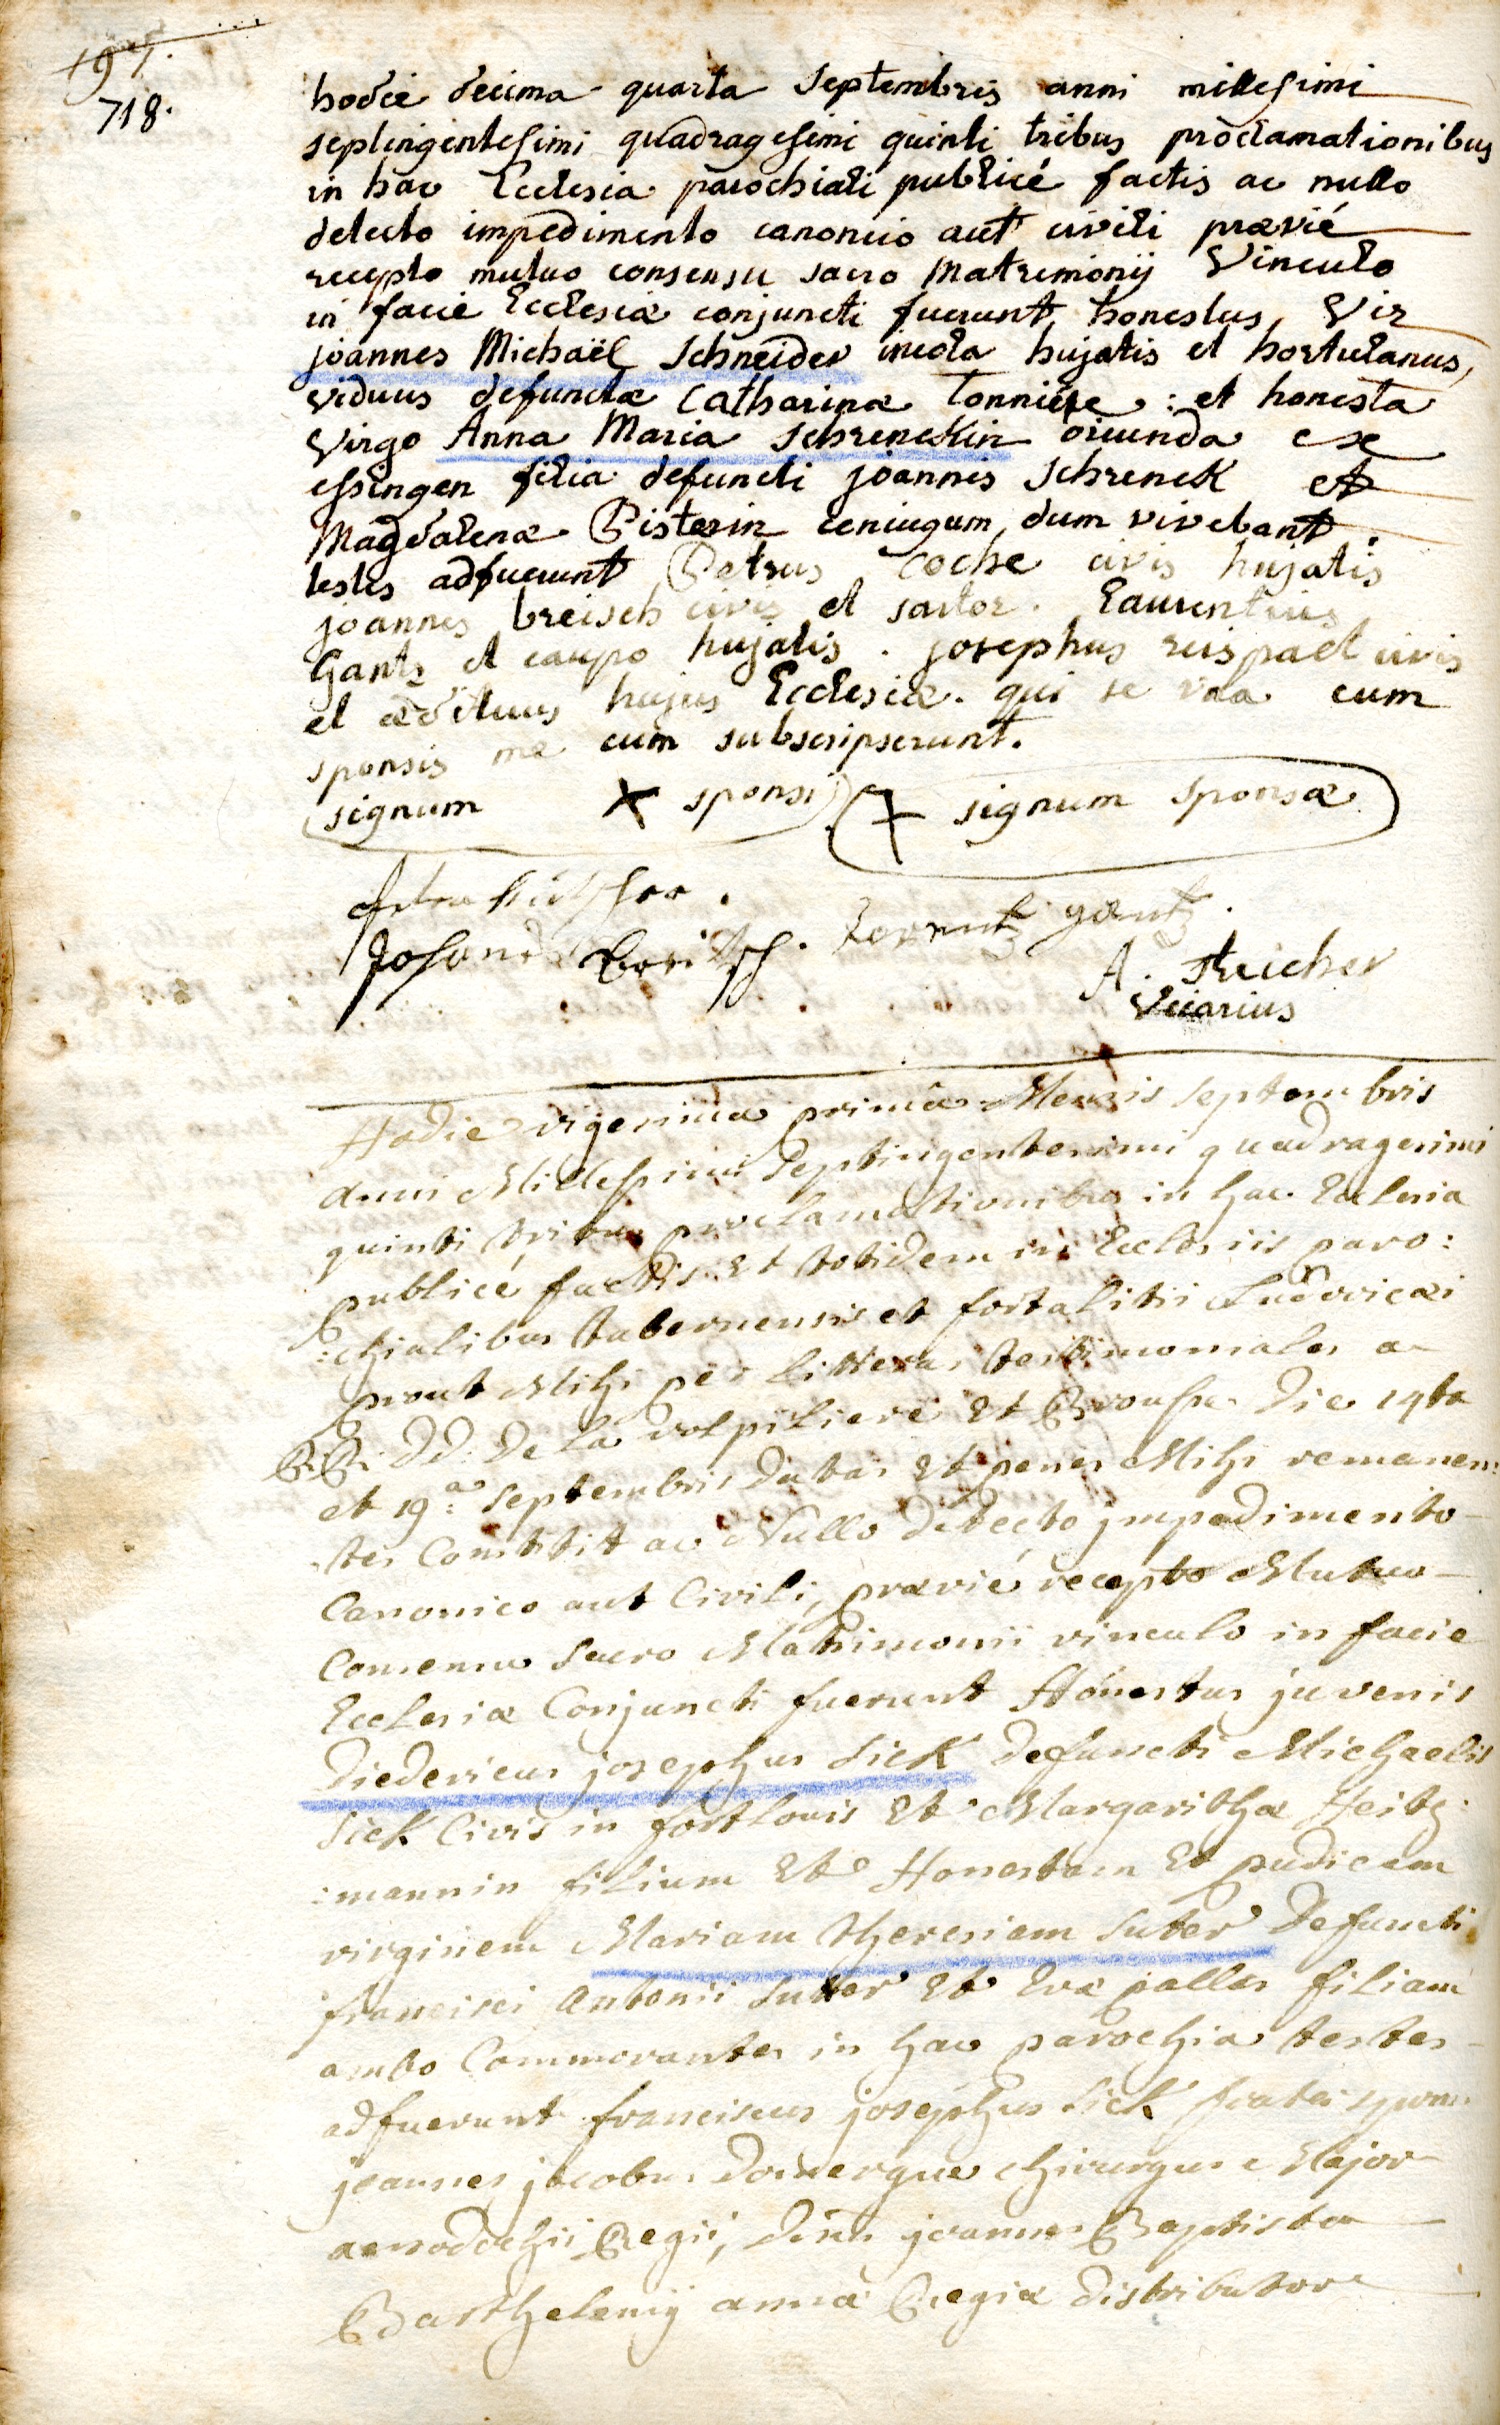 197.
718.
hodie decima quarta Septembris anni millesimi
septingentesimi quadragesimi quinti tribus proclamationibus
in hac Ecclesia parochiali publicé factis ac nullo
detecto impedimento canonico aut civili prævié
recepto mutuo consensu sacro Matrimonij Vinculo
in facie Ecclesiæ conjuncti fuerunt, honestus Vir
joannes Michaël Schneider incola hujatis et hortulanus,
viduus defunctæ Catharinæ Tonniére : et honesta
Virgo Anna Maria Schrenckin oriunda ex
essingen filia defuncti joannis Schrenck et
Magdalenæ Pisterin coniugum, dum vivebant.
testes adfuerunt Petrus Coche civis hujatis
joannes breisch civis et sartor. Laurentius
Gantz et caupo hujatis. josephus reispael civis
et ædituus hujus Ecclesiæ. qui se una cum
sponsis me cum subscripserunt.
signum X sponsi + signum sponsæ
Lorentz gantz.
A. Streicher
Vicarius
Hodie vigesima primâ Mensis Septembris
anni Millesimi Septingentesimi quadragesimi
quinti tribus proclamationibus in hac Ecclesia
publicé factis et totidem in Ecclesiis paro:
:chialibus tabernensis et fortalitii Ludovicæi
prout Mihi per litteras testimoniales a
R.R. DD. De la Volpiliere et Brousse Die 14ta
et 19a: Septembris datas et penes Mihi remanen:
:tes Constitit ac Nullo detecto jmpedimento
Canonico aut Civili, prævié recepto Mutuo
Consensu Sacro Matrimonii vinculo in facie
Ecclesiæ Conjuncti fuerunt Honestus juvenis
Diedericus josephus Sick Defuncti Michaelis
Sick Civis in fortlouis et Margarithæ Heitz:
:mannin filium Et Honestam Et pudicam
virginem Mariam theresiam Suter Defuncti
francisci Antonii Sutter Et Evæ palles filiam
ambo Commorantes in hac parochia testes
adfuerunt franciscus josephus Sick frater spons:
joannes jacobus Domergue chirurgus Major
xenodochii Regii, Dnus joannes Baptista
Barthelemij annâ Regiæ Distributore